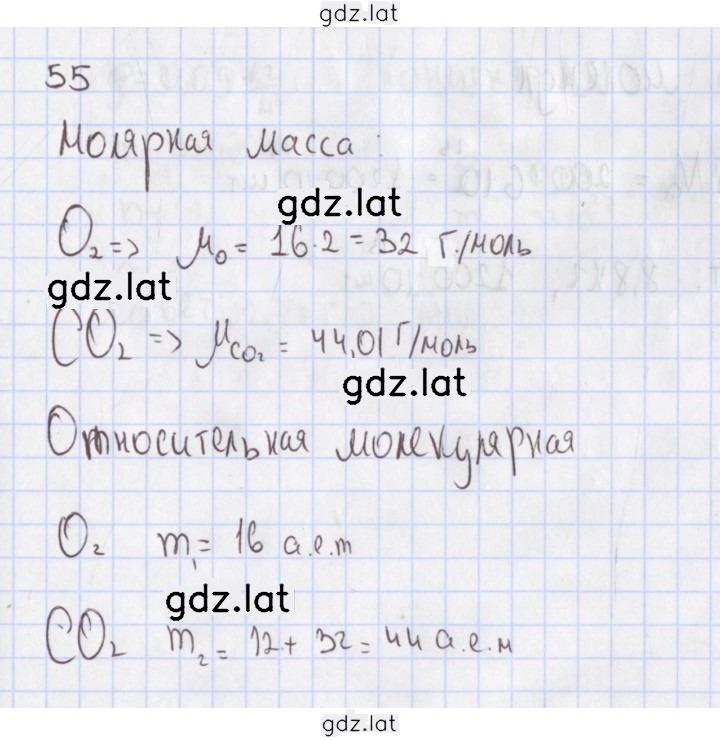 gdz.lat
55
Молярная масса:
gdz.lat
O₂ => μ₀ = 16·2 = 32 г/моль
gdz.lat
CO₂ => μCO₂ = 44,01 г/моль
gdz.lat
Относительная молекулярная
O₂ m₁ = 16 а.е.m
gdz.lat
CO₂ m₂ = 12 + 32 = 44 а.е.м
gdz.lat